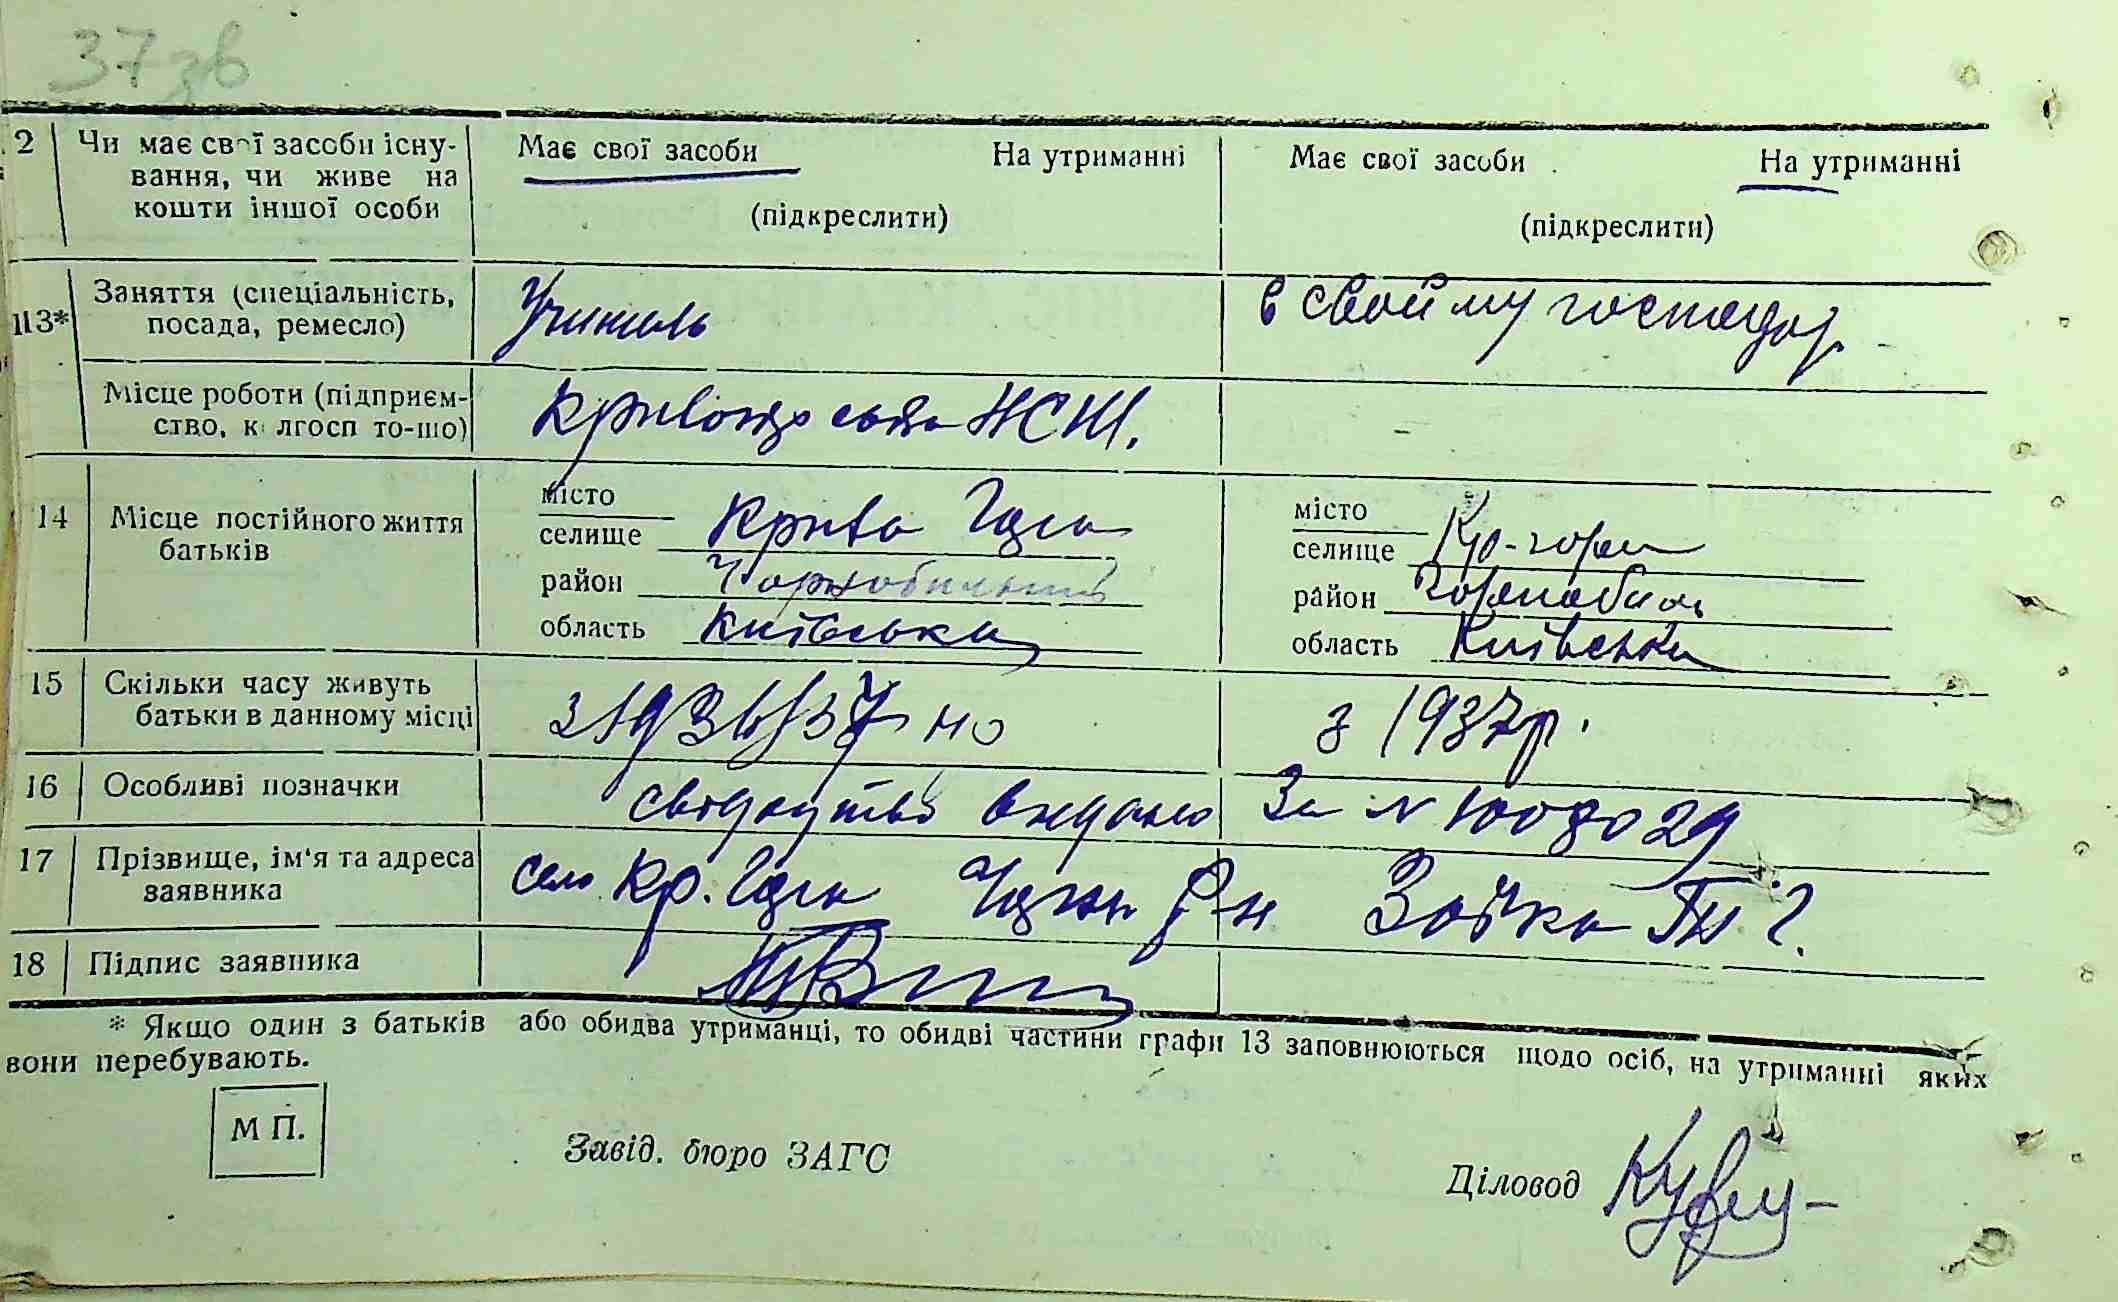 37зв
2 Чи має свої засоби існу- Має свої засоби На утриманні Має свої засоби На утриманні
вання, чи живе на
кошти іншої особи (підкреслити) (підкреслити)
113* Заняття (спеціальність, Учитель в свойму господар.
посада, ремесло)
Місце роботи (підприєм- НСШ. -
ство, к лгосп то-що)
місто місто
14 Місце постійного життя селище Крива Гора селище Кр-гора
батьків район Чорнобильський район Чорнобиль
область Київська область Київська
15 Скільки часу живуть з 1937р.
батьки в данному місці
16 Особливі позначки свідоцтво видано За № 100
17 Прізвище, ім'я та адреса село Кр. Гора р-н Зайка
заявника
18 Підпис заявника
* Якщо один з батьків або обидва утриманці, то обидві частини графи 13 заповнюються щодо осіб, на утриманні яких
вони перебувають.
М П.
Завід. бюро ЗАГС
Діловод